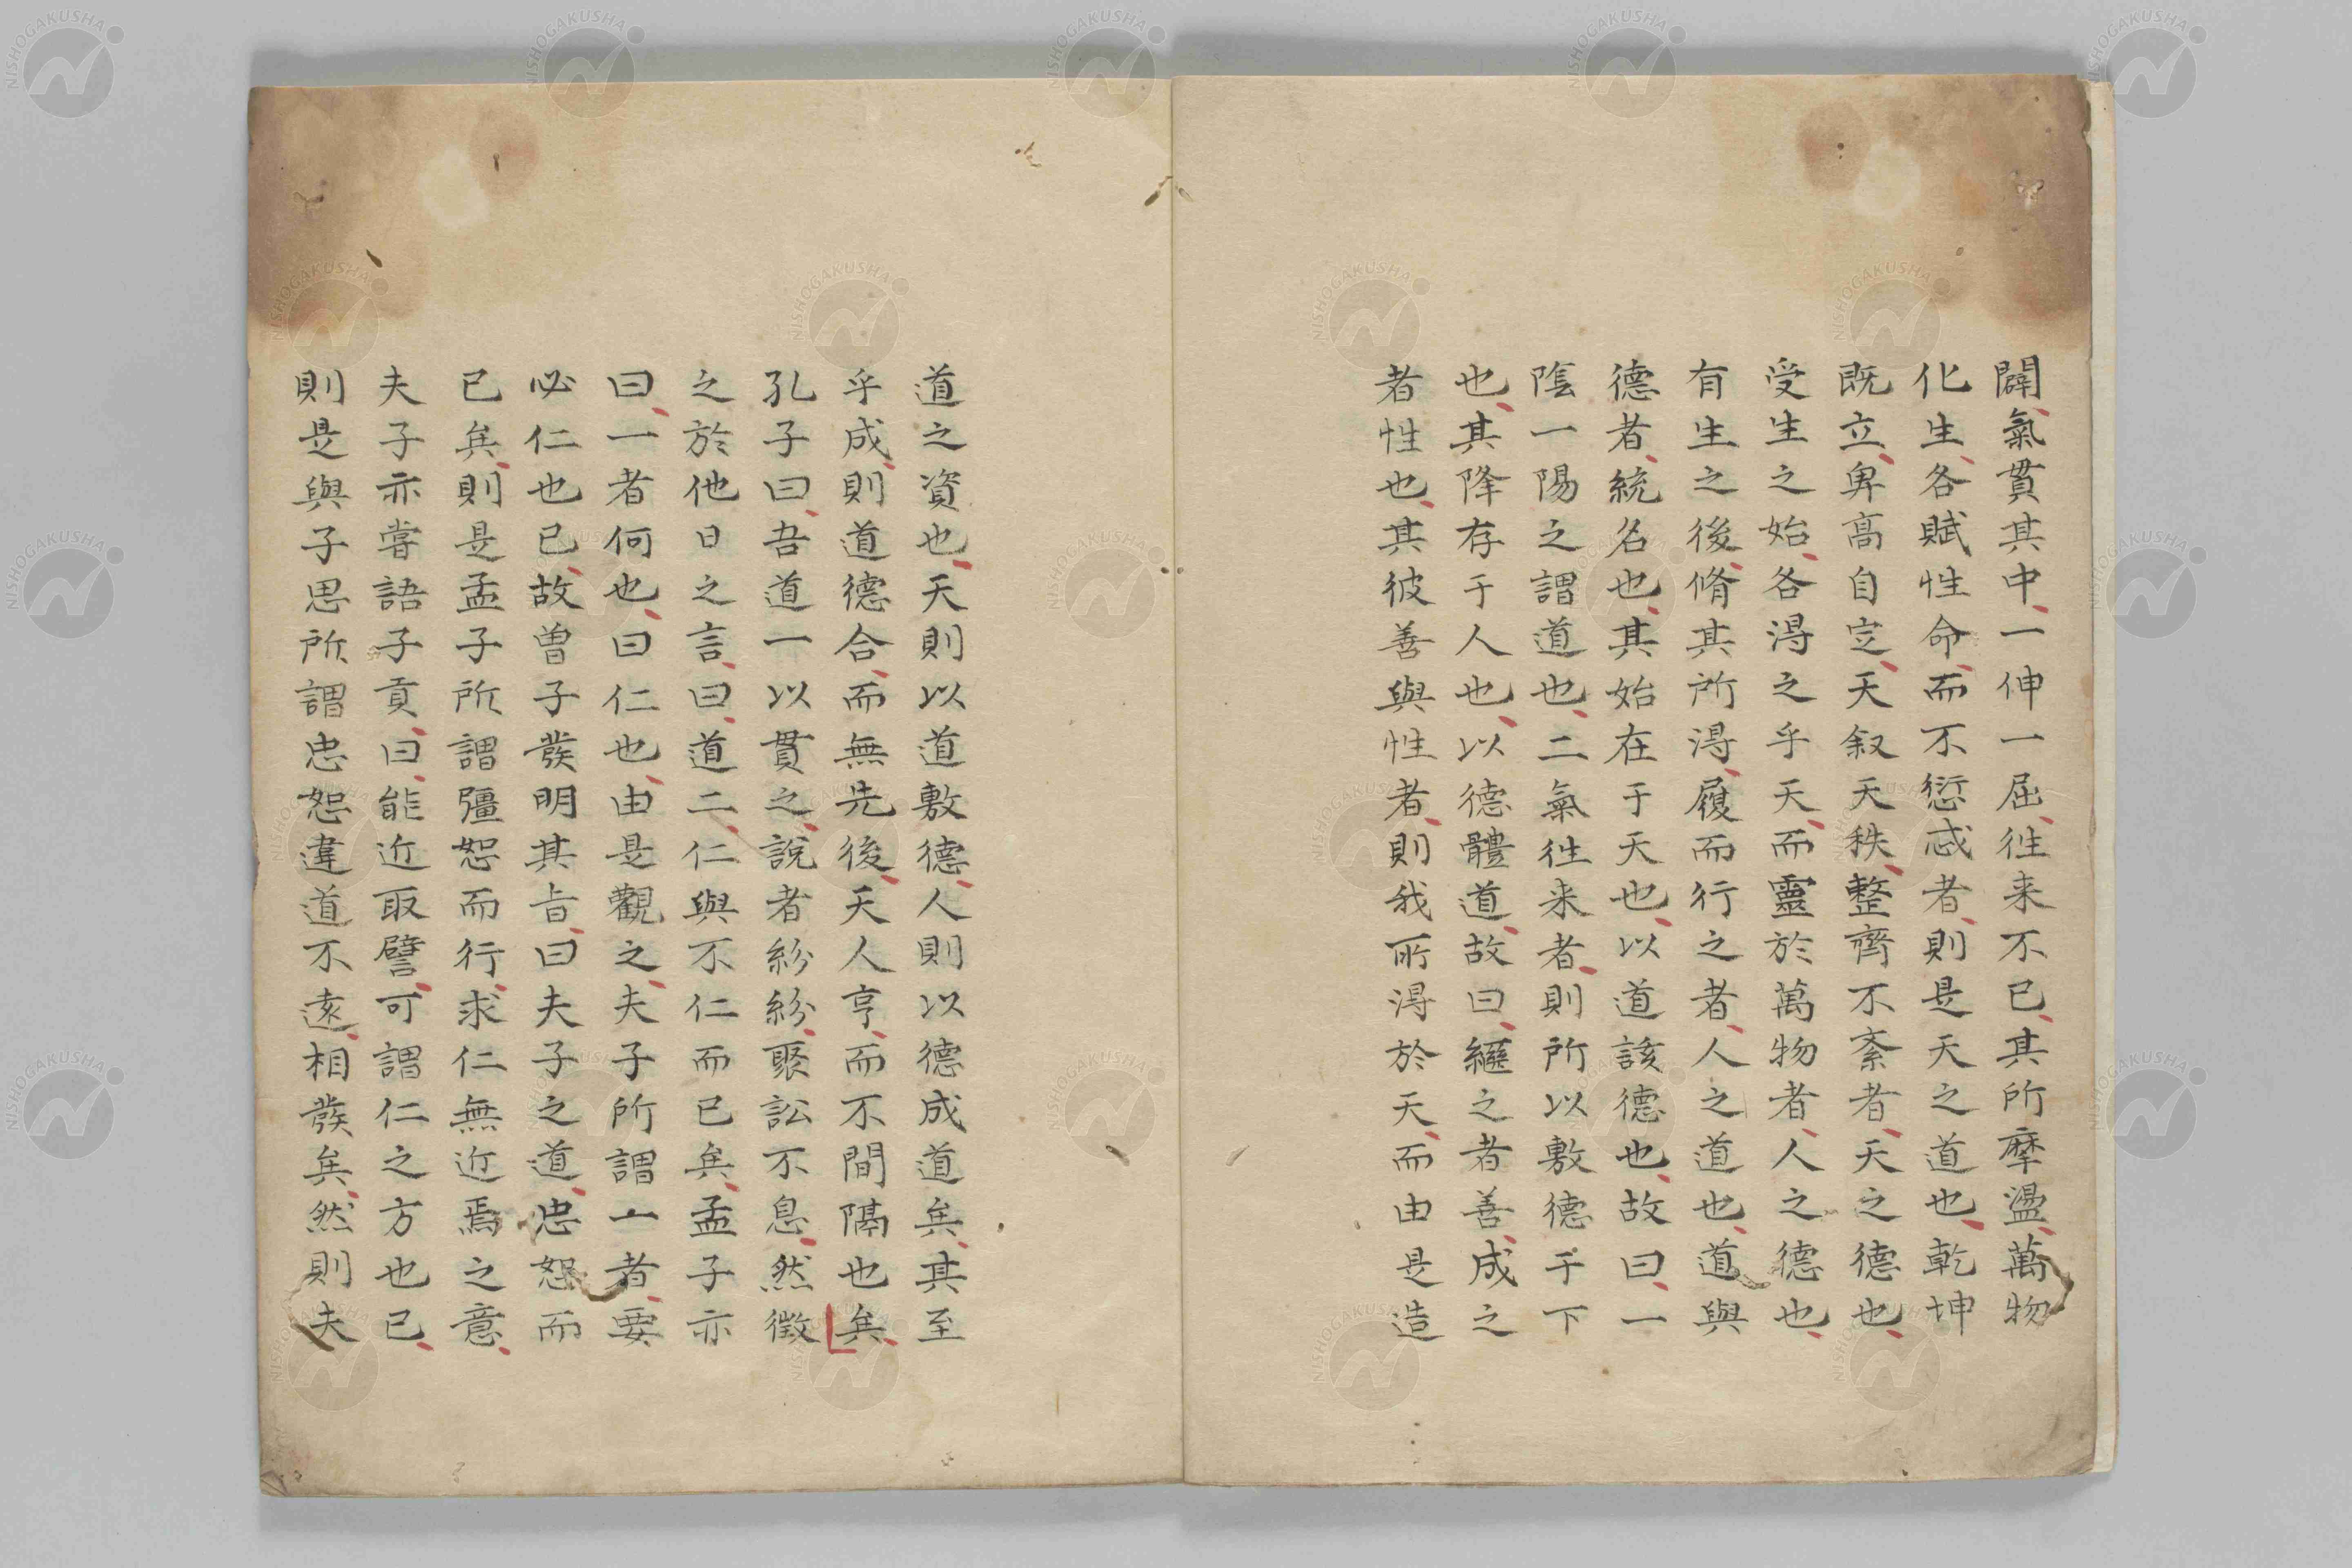 闢氣貫其中一伸一屈徃来不已其所摩盪萬物
化生各賦性命而不愆忒者則是天之道也乾坤
既立卑高自定天叙天秩整齊不紊者天之德也
受生之始各淂之乎天而靈於萬物者人之德也
有生之後脩其所淂履而行之者人之道也道與
德者統名也其始在于天也以道該德也故曰一
陰一陽之謂道也二氣徃来者則所以敷德于下
也其降存于人也以德體道故曰繼之者善成之
者性也其彼善與性者則我所淂於天而由是造
道之資也天則以道敷德人則以德成道矣其至
乎成則道德合而無先後天人亨而不間隔也矣
孔子曰吾道一以貫之說者紛紛聚訟不息然徴
之於他日之言曰道二仁與不仁而已矣孟子亦
曰一者何也曰仁也由是觀之夫子所謂一者要
必仁也已故曽子發明其旨曰夫子之道忠恕而
已矣則是孟子所謂彊恕而行求仁無近焉之意
夫子亦甞語子貢曰能近取譬可謂仁之方也已
則是與子思所謂忠恕違道不遠相發矣然則夫
NISHOGAKUSHA